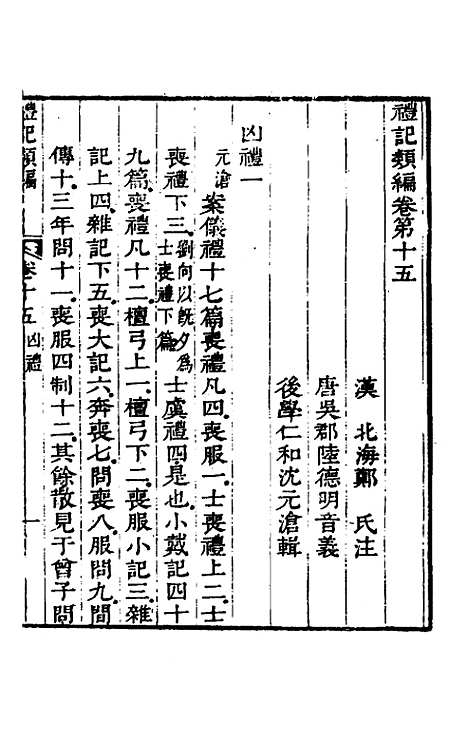 禮記類編卷第十五
漢 北海鄭 氏注
唐吳郡陸德明音義
後學仁和沈元滄輯
凶禮一
元滄案儀禮十七篇喪禮凡四喪服一士喪禮上二士
喪禮下三劉向以旣夕爲士喪禮下篇士虞禮四是也小戴記四十
九篇喪禮凡十二檀弓上一檀弓下二喪服小記三雜
記上四雜記下五喪大記六奔喪七問喪八服問九間
傳十三年問十一喪服四制十二其餘散見于曾子問
禮記類編 卷十五 凶禮 一